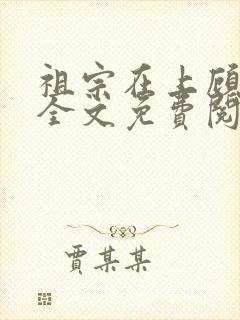 祖宗在上顾
全文免費閱
贾某某